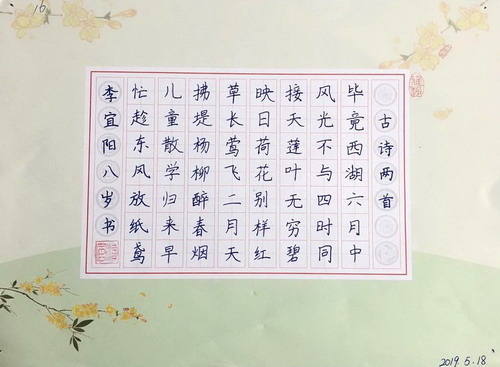 16
古诗两首
毕竟西湖六月中
风光不与四时同
接天莲叶无穷碧
映日荷花别样红
草长莺飞二月天
拂堤杨柳醉春烟
儿童散学归来早
忙趁东风放纸鸢
李宜阳八岁书
2019.5.18